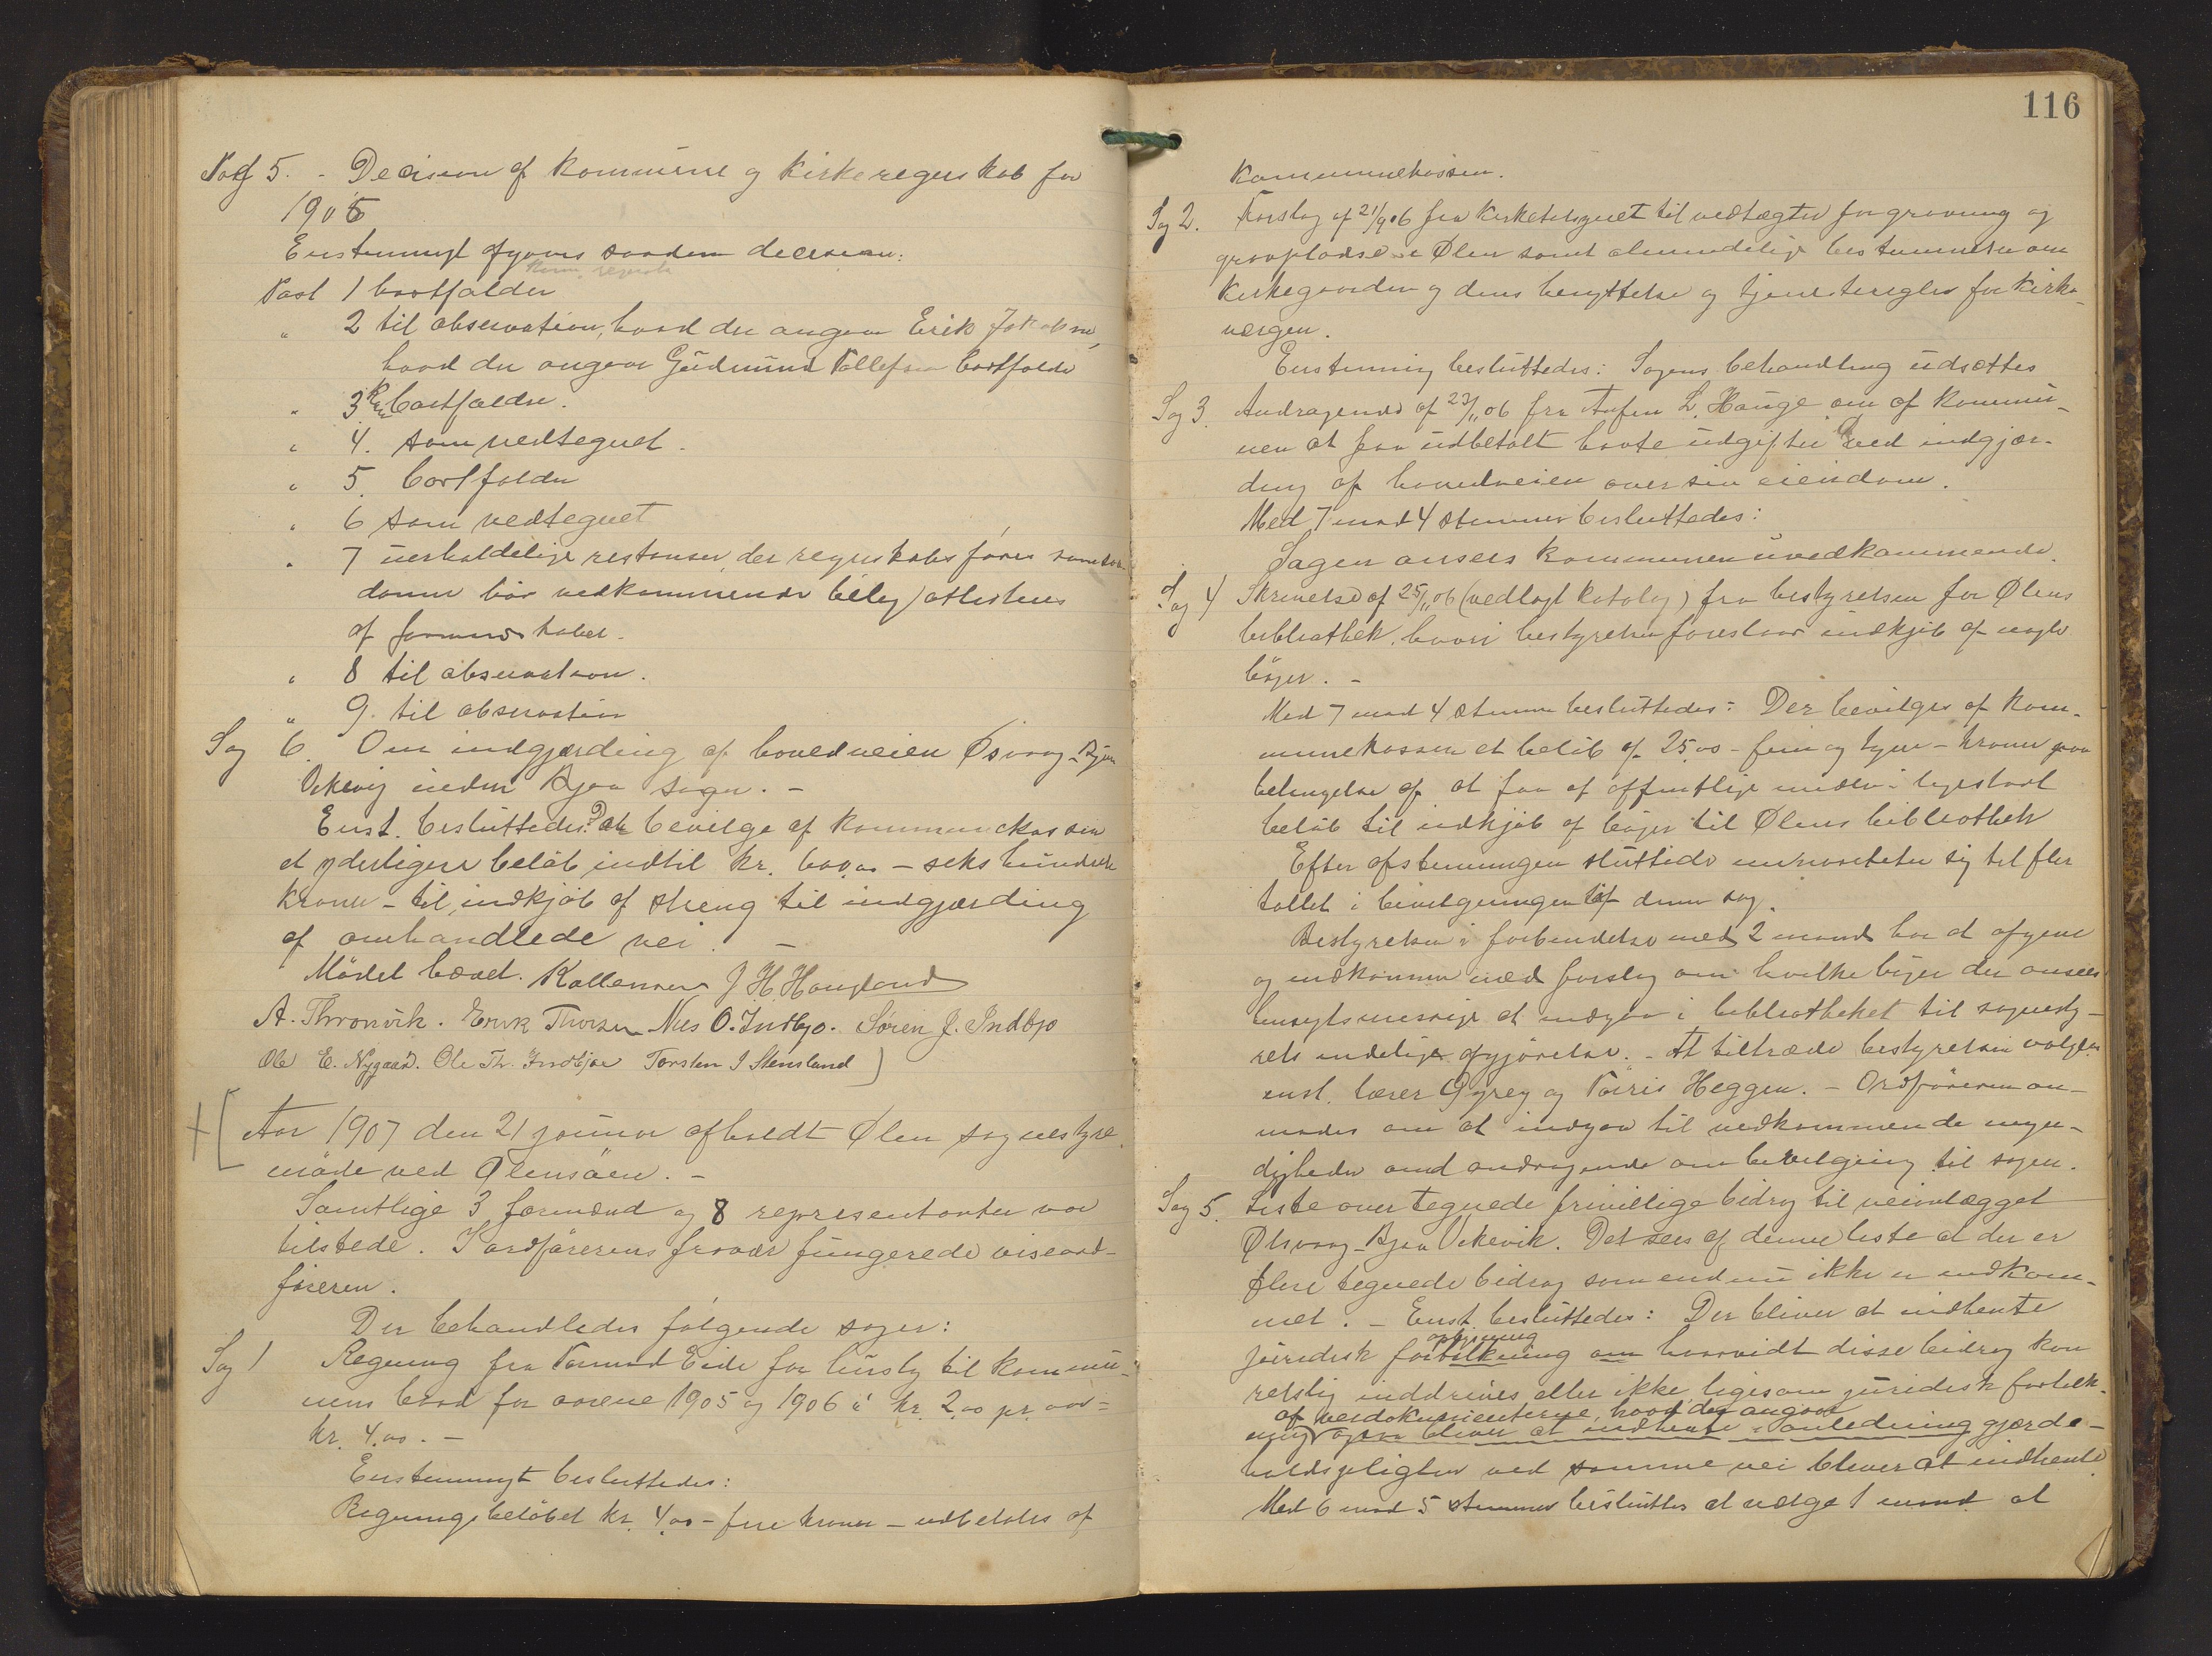 Sag 5. - Decision af kommune og kirkeregnskab for
1905
Enstemmigt afgaves saadan decision:
Post 1 bortfalder
" 2 til observation, hvad der angaar Erik Jakobsen,
hvad der angaar Gudmund Tollefsen bortfalder
" 3 bortfalder.
" 4. som vedtegnet.
" 5. bortfalder
" 6 som vedtegnet
" 7 uerholdelige restanser, der regnskabsføres som saa-
danne bør vedkommende bilag attesteres
af formandskabet.
" 8 til observation.
" 9. til observation
Sag 6. Om indgjærding af hovedveien Ølsvaag-Bjoa
Vikevig inden Bjoa sogn. -
Enst. besluttedes: At bevilge af kommunekassen
et yderligere beløb indtil kr. 600,00 - seks hundrede
kroner - til indkjøb af streng til indgjærding
af omhandlede vei. -
Mødet hævet. Kallevik J H Haugland
A. Thronvik. Erik Thorsen Nils O. Indbjo. Søren J. Indbjo
Ole E. Nygaard. Ole Th. Indbjoe Torsten J Stensland
Aar 1907 den 21 januar afholdt Ølen sognestyre
møde ved Ølensøen. -
Samtlige 3 formænd og 8 representanter var
tilstede. I ordførerens fravær fungerede viseord-
føreren.
Der behandledes følgende sager:
Sag 1 Regning fra Tormod Eide for husly til kommu-
nens baad for aarene 1905 og 1906 á kr. 2,00 pr. aar =
kr. 4,00. -
Enstemmigt besluttedes:
Regningsbeløbet kr. 4,00 - fire kroner - udbetales af
116
kommunekassen.
Sag 2. Forslag af 21/9 06 fra kirketilsynet til vedtægter for gravning og
gravpladse i Ølen samt almindelige bestemmelser om
kirkegaarden og dens benyttelse og tjenesteregler for kirke-
vergen.
Enstemmig besluttedes: Sagens behandling udsættes
Sag 3. Andragende af 23/11 06 fra Anfin L. Hauge om af kommu-
nen at faa udbetalt havte udgifter ved indgjær-
ding af hovedveien over sin eiendom.
Med 7 mod 4 stemmer besluttedes:
Sagen ansees kommunen uvedkommende.
Sag 4 Skrivelse af 25/11 06 (vedlagt katalog) fra bestyrelsen for Ølens
bibliothek, hvori bestyrelsen foreslaar indkjøb af nogle
bøger. -
Med 7 mod 4 stemmer besluttedes: Der bevilges af kom-
munekassen et beløb af 25,00 - fem og tyve - kroner paa
betingelse af at faa af offentlige midler ligestort
beløb til indkjøb af bøger til Ølens bibliothek
Efter afstemningen sluttede minoriteten sig til fler
tallet i bevilgningen af denne sag.
Bestyrelsen i forbindelse med 2 mænd har at afgive
og indkomme med forslag om hvilke bøger der ansees
hensigtsmæssige at indgaa i bibliotheket til sognesty-
rets endelige afgjørelse. - At tiltræde bestyrelsen valgtes
enst. lærer Øyrey og Torris Heggen. - Ordføreren an-
modes om at indgaa til vedkommende myn-
digheder med andragende om bevilgning til sagen.
Sag 5. Liste over tegnede frivillige bidrag til veianlægget
Ølsvaag-Bjoa Vikevik. Det sees af denne liste at der er
flere tegnede bidrag som endnu ikke er indkom-
met. - Enst. besluttedes: Der bliver at indhente
oplysning
juridisk fortolkning om hvorvidt disse bidrag kan
retslig inddrives eller ikke, ligesom juridisk fortolk-
af veidokumenterne, hvad der angaar
ning ogsaa bliver at indhente i anledning gjærde-
holdspligten ved samme vei bliver at indhente.
Med 6 mod 5 stemmer besluttes at vælge 1 mand at